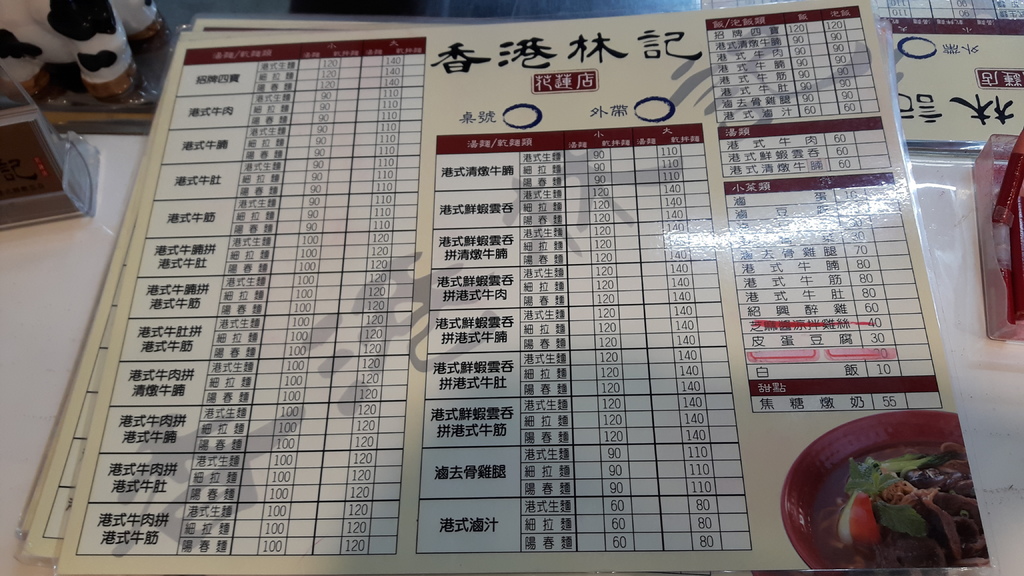 香港林記
花蓮店
桌號 外帶
湯麵/乾麵類 小 大
湯麵 乾拌麵 湯麵 乾拌麵
招牌四寶 港式生麵 120 140
細拉麵 120 140
陽春麵 120 140
港式牛肉 港式生麵 90 110
細拉麵 90 110
陽春麵 90 110
港式牛腩 港式生麵 90 110
細拉麵 90 110
陽春麵 90 110
港式牛肚 港式生麵 90 110
細拉麵 90 110
陽春麵 90 110
港式牛筋 港式生麵 90 110
細拉麵 90 110
陽春麵 90 110
港式牛腩拼
港式牛肚 港式生麵 100 120
細拉麵 100 120
陽春麵 100 120
港式牛腩拼
港式牛筋 港式生麵 100 120
細拉麵 100 120
陽春麵 100 120
港式牛肚拼
港式牛筋 港式生麵 100 120
細拉麵 100 120
陽春麵 100 120
港式牛肉拼
清燉牛腩 港式生麵 100 120
細拉麵 100 120
陽春麵 100 120
港式牛肉拼
港式牛腩 港式生麵 100 120
細拉麵 100 120
陽春麵 100 120
港式牛肉拼
港式牛肚 港式生麵 100 120
細拉麵 100 120
陽春麵 100 120
港式牛肉拼
港式牛筋 港式生麵 100 120
細拉麵 100 120
陽春麵 100 120
湯麵/乾麵類 小 大
湯麵 乾拌麵 湯麵 乾拌麵
港式清燉牛腩 港式生麵 90 110
細拉麵 90 110
陽春麵 90 110
港式鮮蝦雲吞 港式生麵 120
細拉麵 90 120
陽春麵 90 120
港式鮮蝦雲吞
拼清燉牛腩 港式生麵 120 140
細拉麵 120 140
陽春麵 120 140
港式鮮蝦雲吞
拼港式牛肉 港式生麵 120 140
細拉麵 120 140
陽春麵 120 140
港式鮮蝦雲吞
拼港式牛腩 港式生麵 120 140
細拉麵 120 140
陽春麵 120 140
港式鮮蝦雲吞
拼港式牛肚 港式生麵 120 140
細拉麵 120 140
陽春麵 120 140
港式鮮蝦雲吞
拼港式牛筋 港式生麵 120 140
細拉麵 120 140
陽春麵 120 140
滷去骨雞腿 港式生麵 90 110
細拉麵 90 110
陽春麵 90 110
港式滷汁 港式生麵 60 80
細拉麵 60 80
陽春麵 60 80
飯/泡飯類 飯 泡飯
招牌四寶 120 120
港式清燉牛腩 90 90
港式牛肉 90 90
港式牛腩 90 90
港式牛肚 90 90
港式牛筋 90 90
滷去骨雞腿 90 90
港式滷汁 60 60
湯類
港式牛肉 60
港式鮮蝦雲吞 60
港式清燉牛腩 60
小菜類
滷蛋
滷豆
滷去骨雞腿 70
港式牛腩 80
港式牛筋 80
港式牛肚 80
紹興醉雞 60
皮蛋豆腐 30
白飯 10
甜點
焦糖燉奶 55
外帶
蓮店
林記
記